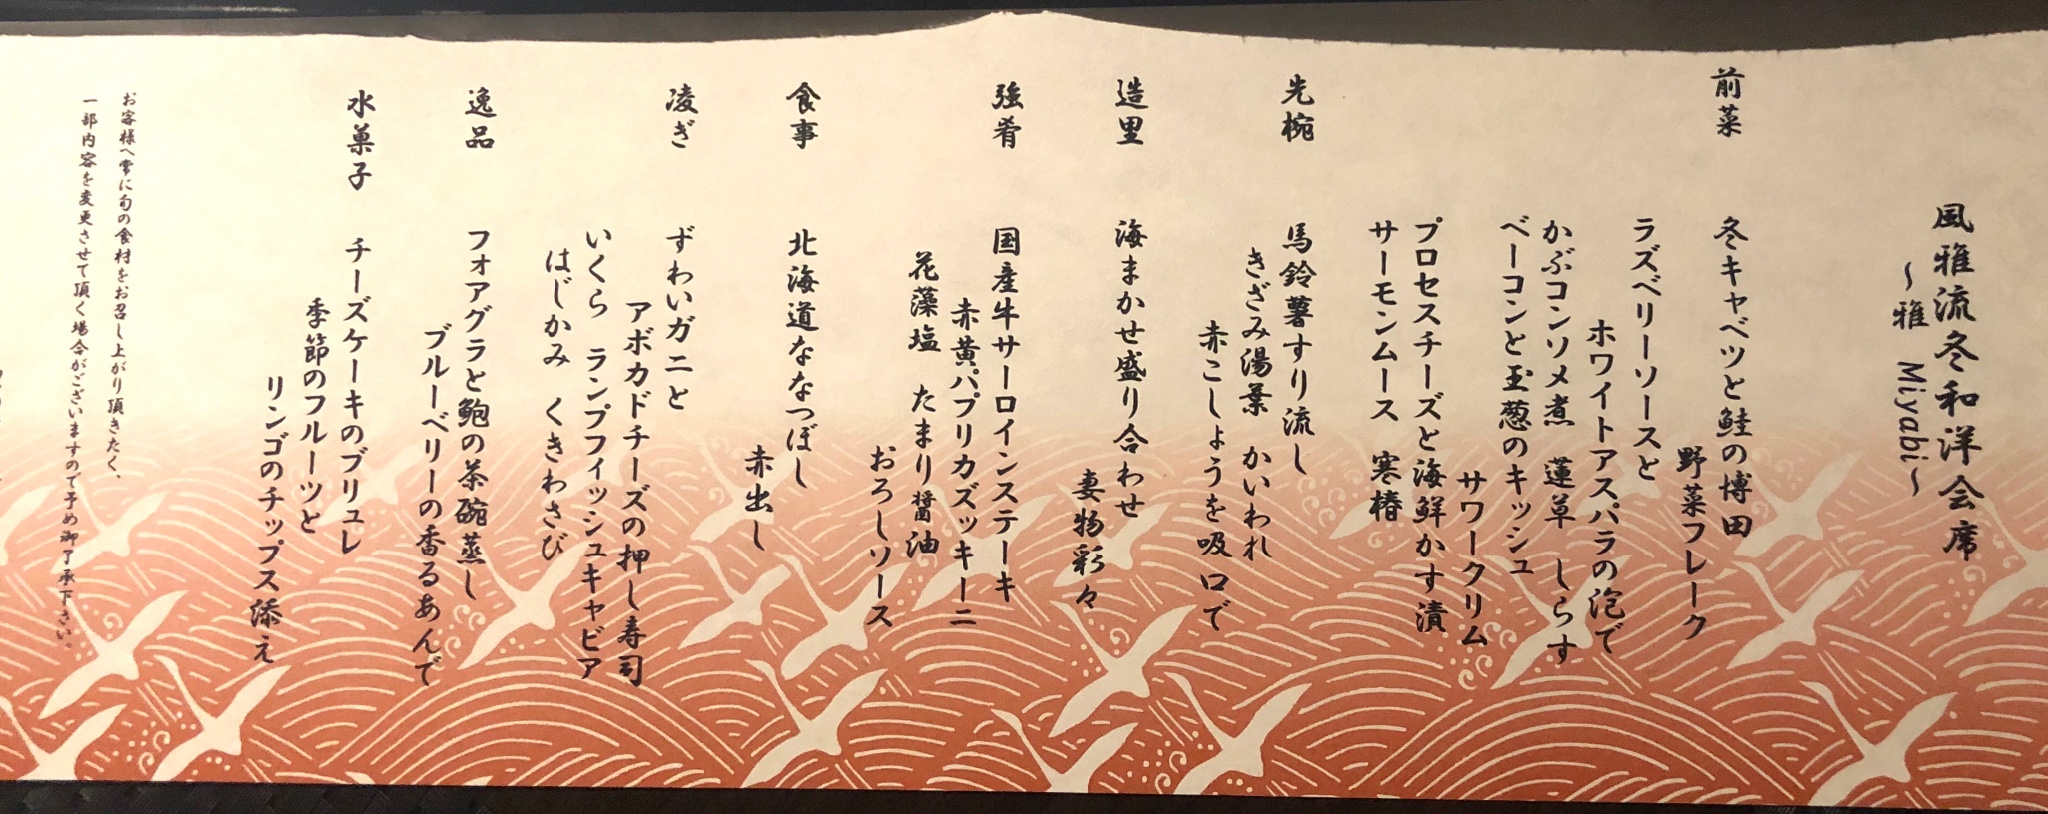 風雅流冬和洋会席
～雅 Miyabi～
前菜 冬キャベツと鮭の博田
野菜フレーク
ラズベリーソースと
ホワイトアスパラの泡で
かぶコンソメ煮 蓮草 しらす
ベーコンと玉葱のキッシュ
サワークリム
プロセスチーズと海鮮かす漬
サーモンムース 寒椿
先椀 馬鈴薯すり流し
きざみ湯葉 かいわれ
赤こしょうを吸口で
造里 海まかせ盛り合わせ
妻物彩々
強肴 国産牛サーロインステーキ
赤黄パプリカズッキーニ
花藻塩 たまり醤油
おろしソース
食事 北海道ななつぼし
赤出し
凌ぎ ずわいガニと
アボカドチーズの押し寿司
いくら ランプフィッシュキャビア
はじかみ くきわさび
逸品 フォアグラと鮑の茶碗蒸し
ブルーベリーの香るあんで
水菓子 チーズケーキのブリュレ
季節のフルーツと
リンゴのチップス添え
お客様へ常に旬の食材をお召し上がり頂きたく、
一部内容を変更させて頂く場合がございますので予め御了承下さい。